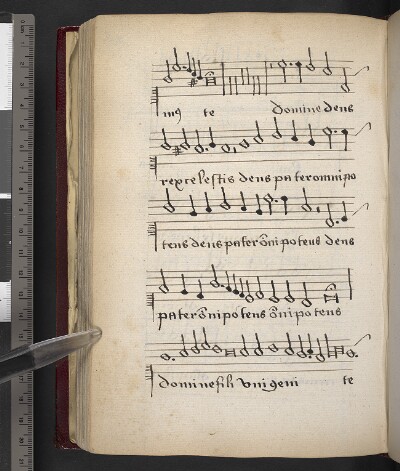 mꝰ te domine deus
rex celestis deus pater omnipo
tens deus pater õnipotens deus
pater õnipotens õnipotens
domine fili vnigeni te